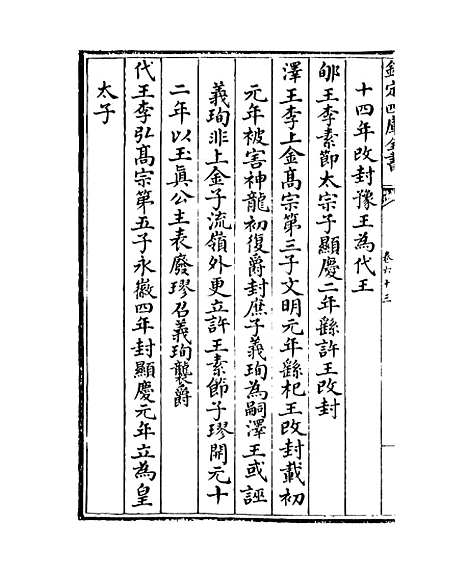 欽定四庫全書
卷六十三
十四年改封豫王為代王
郇王李素節太宗子顯慶二年繇許王改封
澤王李上金髙宗第三子文明元年繇杞王改封載初
元年被害神龍初復爵封庶子義珣為嗣澤王或誣
義珣非上金子流嶺外更立許王素節子璆開元十
二年以玉眞公主表廢璆召義珣襲爵
代王李弘髙宗第五子永徽四年封顯慶元年立為皇
太子